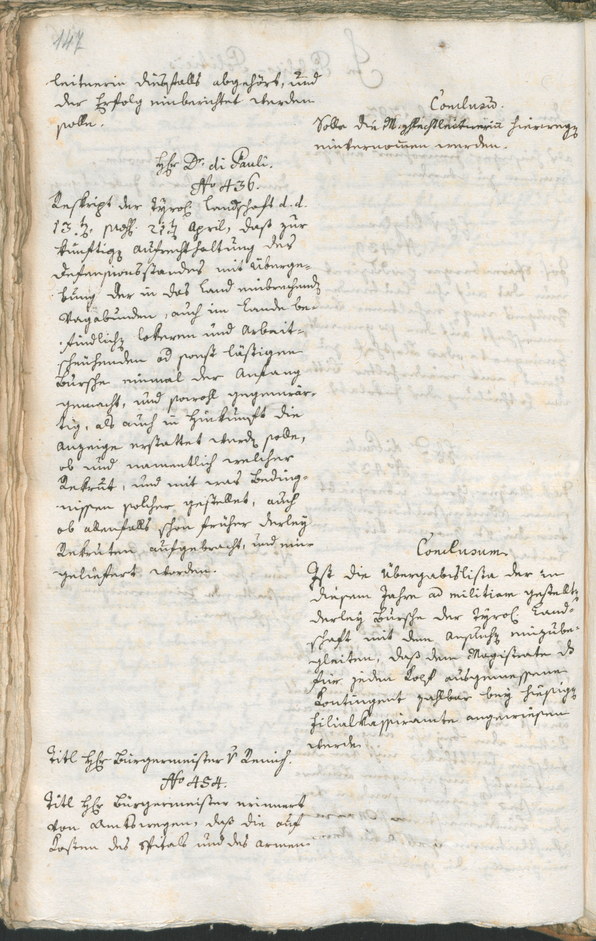 147
leitnerin dießfalls abgehört, und
der Erfolg einberichtet werden
solle.
Conclusum.
Solle die hierwegen
einvernommen werden.
Hr. Dr. di Pauli.
No 436.
Reskript der Tyrol. Landschaft d. d.
13. 21. April, daß zur
künftigen Aufrechthaltung des
Defensionsstandes mit Überge-
bung der in das Land einbrechenden
Vagabunden, auch im Lande be-
findlichen lokeren und Arbeit-
scheuhenden od sonst lästigen
Bursche einmal der Anfang
gemacht, und sowohl gegenwär-
tig, als auch in Hinkunft die
Anzeige erstattet werden solle,
ob und namentlich welcher
Rekrut, und mit was Beding-
nissen solcher gestellet, auch
ob allenfalls schon früher derley
Rekruten aufgebracht, und ein-
geliefert worden.
Conclusum.
Ist die Übergabsliste der in
diesem Jahre ad militiam gestellten
derley Bursche der Tyrol. Land-
schaft mit dem Ansuchen einzube-
gleiten, daß dem Magistrate das
für jeden Kopf ausgemessene
Kontingent zahlbar bey hiesigem
Filialkassieramte angewiesen
werde.
Titl. Hr. Bürgermeister v.
No 454.
Titl. Hr. Bürgermeister erinnert
von Amtswegen, daß die auf
Kosten des Spitals und des Armen-